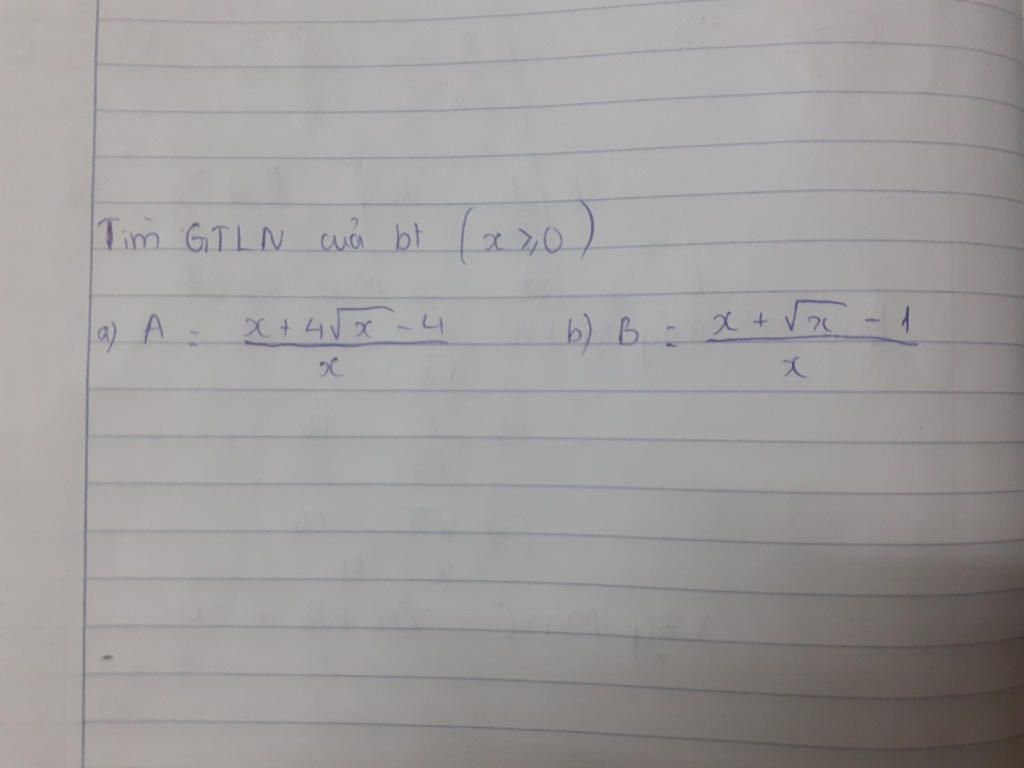 Tìm GTLN của bt (x ⩾ 0)
a) A = \frac{x + 4\sqrt{x} - 4}{x} b) B = \frac{x + \sqrt{x} - 1}{x}